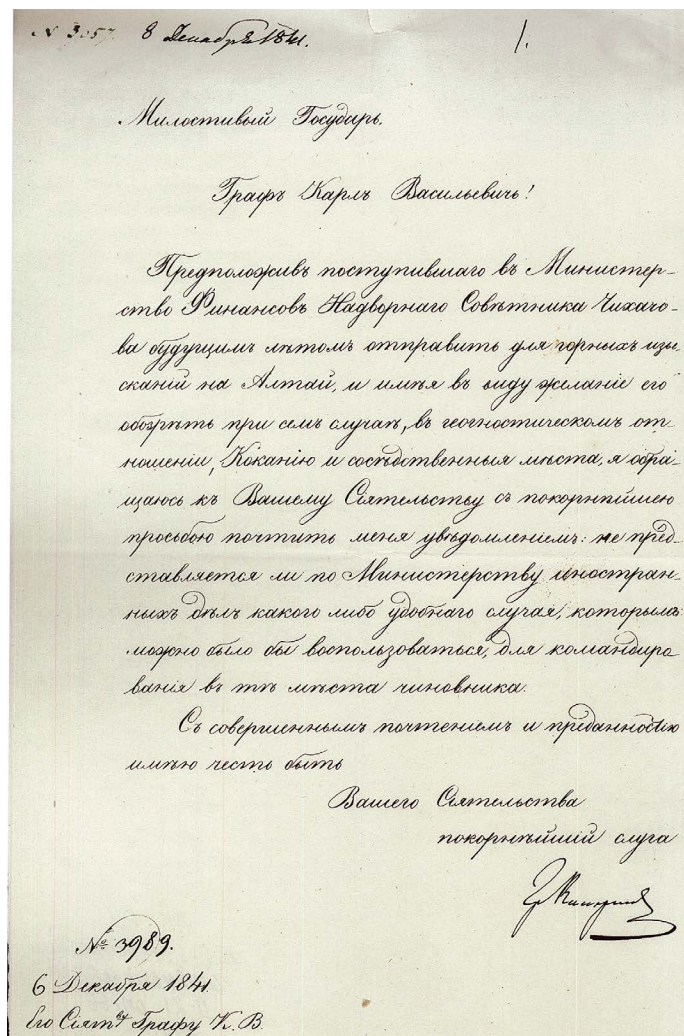 № 3057. 8 Декабря 1841. 1.
Милостивый Государь.
Графъ Карлъ Васильевичь!
Предположивъ поступившаго въ Министер-
ство Финансовъ Надворнаго Совѣтника Чихачо-
ва будущимъ лѣтомъ отправить для горныхъ изы-
сканій на Алтай, и имѣя въ виду желаніе его
обозрѣть при семъ случаѣ, въ геогностическомъ от-
ношеніи, Коканію и сосѣдственныя мѣста, я обра-
щаюсь къ Вашему Сіятельству съ покорнѣйшею
просьбою почтить меня увѣдомленіемъ: не пред-
ставляется ли по Министерству иностран-
ныхъ дѣлъ какого либо удобнаго случая, которымъ
можно было бы воспользоваться, для командиро
ванія въ тѣ мѣста чиновника.
Съ совершеннымъ почтеніемъ и преданностію
имѣю честь быть
Вашего Сіятельства
покорнѣйшій слуга
№ 3989.
6 Декабря 1841.
Его Сіят-ву Графу К. В.